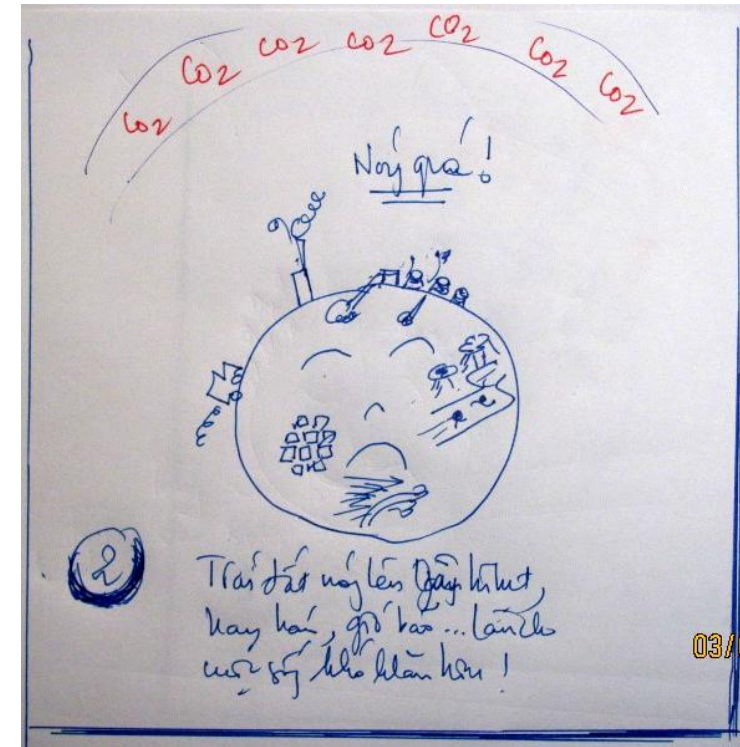 CO2 CO2 CO2 CO2 CO2 CO2 CO2
Nóng quá!
2
Trái đất nóng lên gây lũ lụt,
hay hán, gió bão... làm cho
cuộc sống khó khăn hơn!
03/